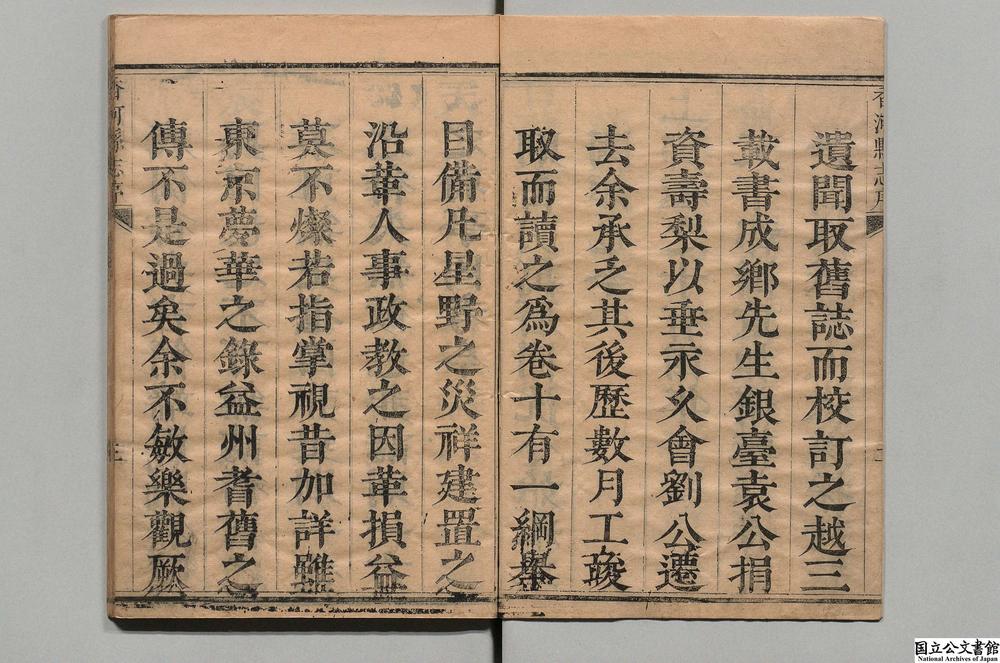 遺聞取舊誌而校訂之越三
載書成鄉先生銀臺袁公捐
資壽梨以垂永久會劉公遷
去余承乏其後歷數月工竣
取而讀之爲卷十有一綱舉
目備凡星野之災祥建置之
沿革人事政教之因革損益
莫不燦若指掌視昔加詳雖
東京夢華之錄益州耆舊之
傳不是過矣余不敏樂觀厥
香河縣志序
香河縣志序
国立公文書館
National Archives of Japan